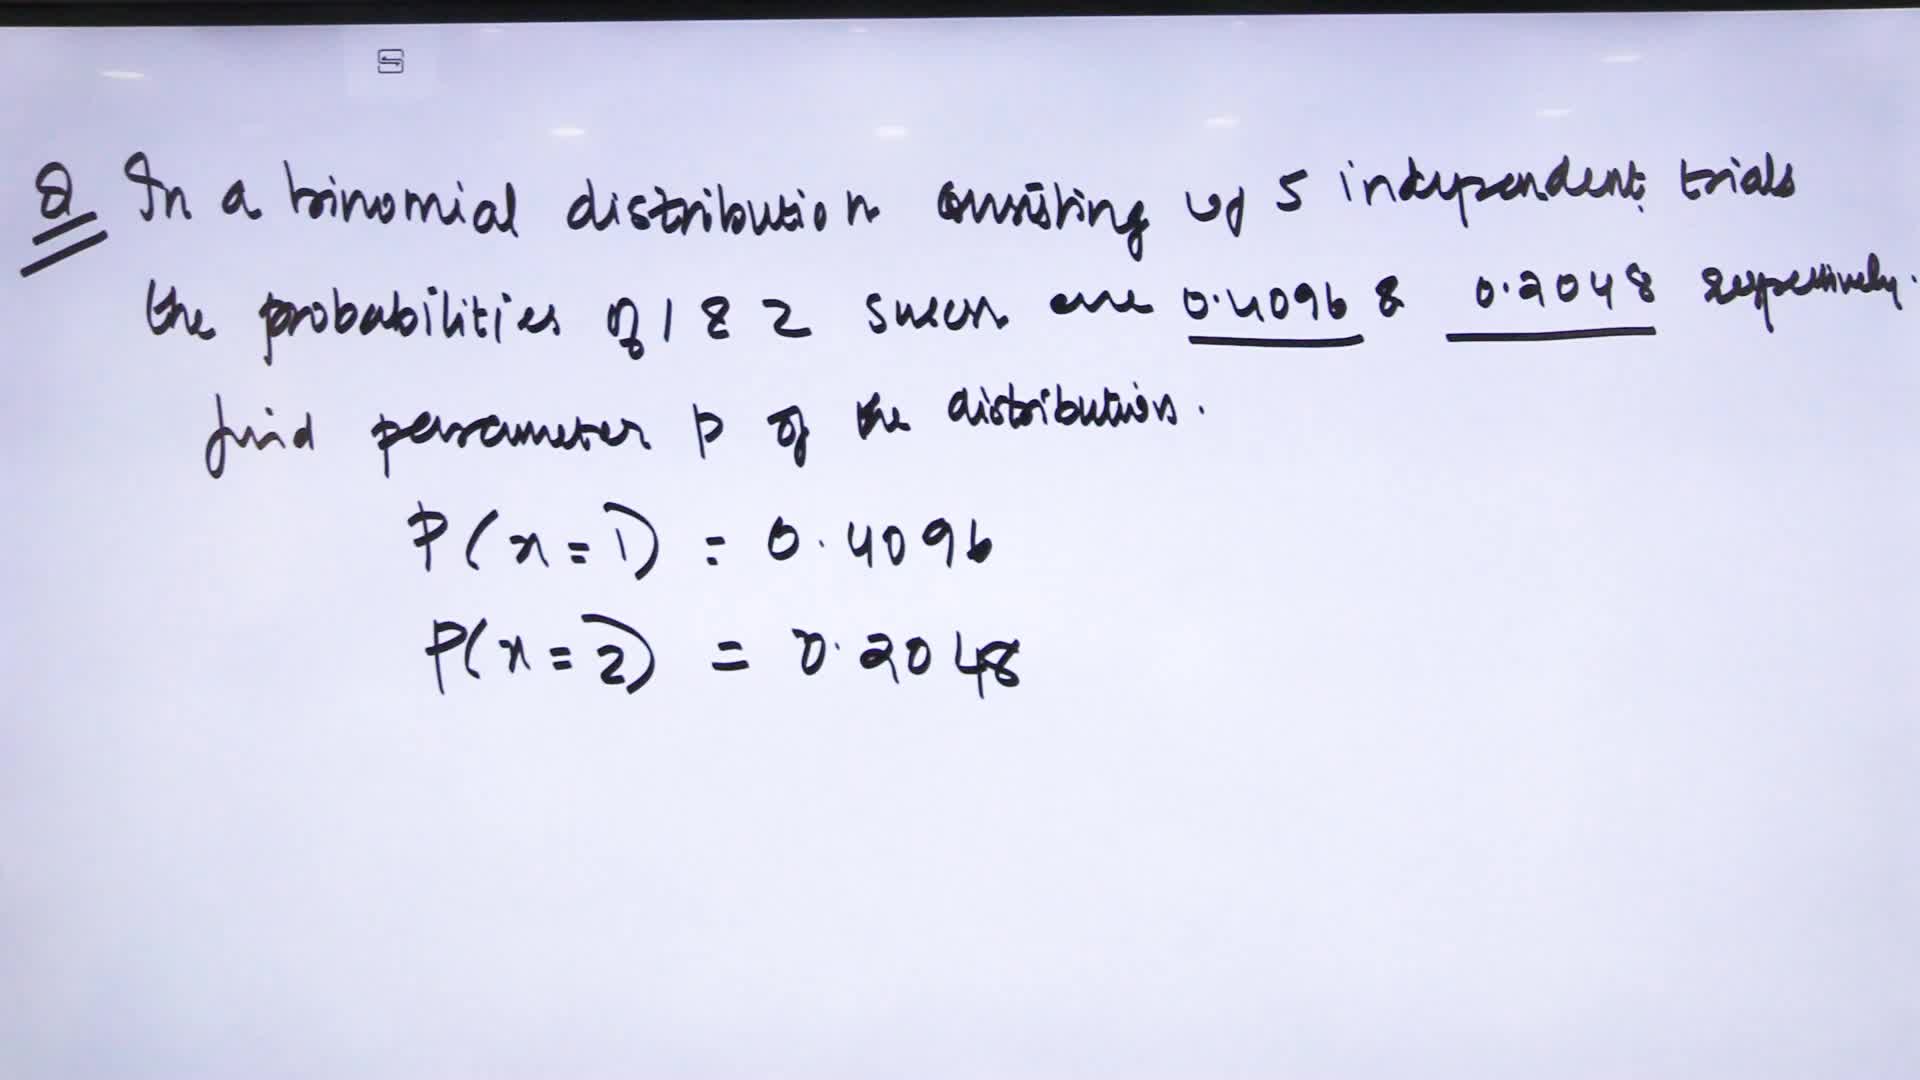 Q In a binomial distribution consisting of 5 independent trials
the probabilities of 1 & 2 success are 0.4096 & 0.2048 respectively.
find parameter p of the distribution.
P(x=1) = 0.4096
P(x=2) = 0.2048